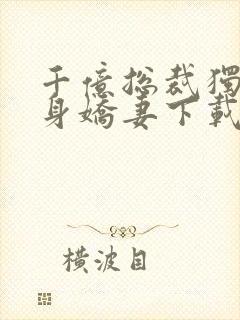 千億總裁獨
身嬌妻下載
橫波目